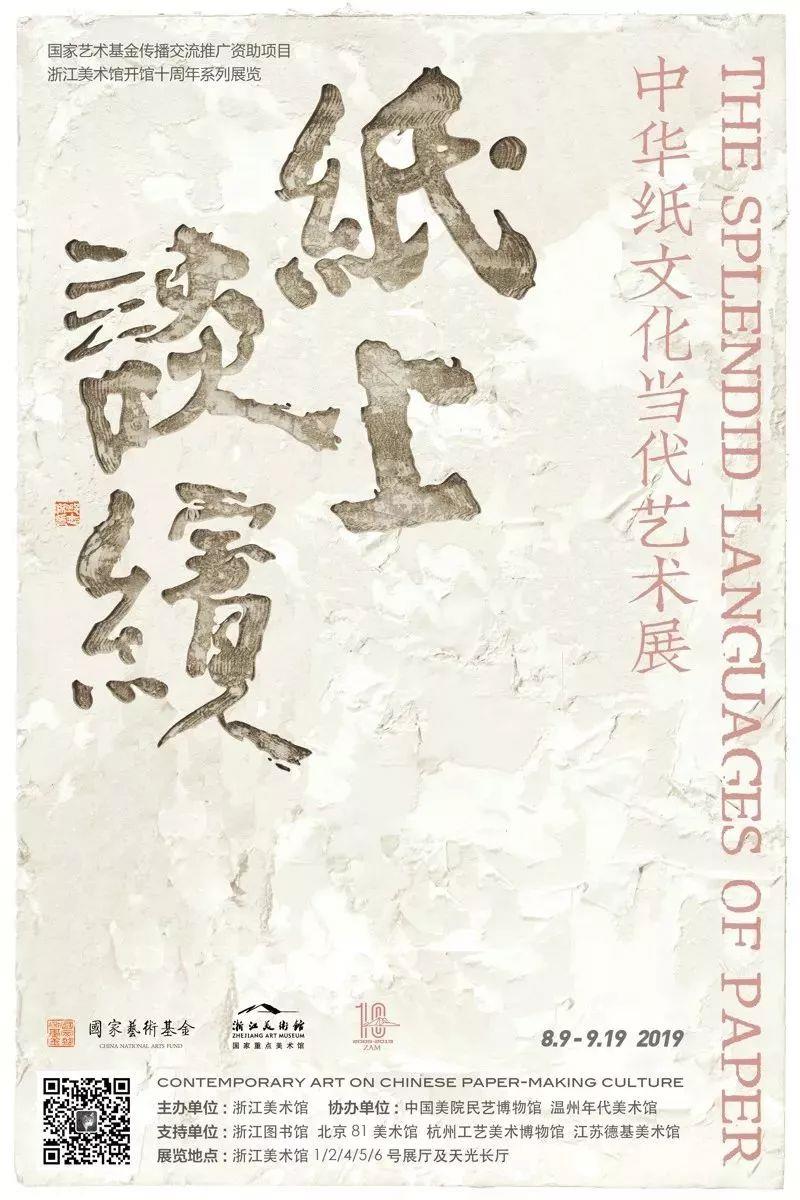 国家艺术基金传播交流推广资助项目
浙江美术馆开馆十周年系列展览
紙上
談續
中华纸文化当代艺术展
THE SPLENDID LANGUAGES OF PAPER
國家藝術基金
CHINA NATIONAL ARTS FUND
浙江美術館
ZHEJIANG ART MUSEUM
国家重点美术馆
10
2009-2019
ZAM
8.9-9.19 2019
CONTEMPORARY ART ON CHINESE PAPER-MAKING CULTURE
主办单位：浙江美术馆 协办单位：中国美院民艺博物馆 温州年代美术馆
支持单位：浙江图书馆 北京 81 美术馆 杭州工艺美术博物馆 江苏德基美术馆
展览地点：浙江美术馆 1/2/4/5/6 号展厅及天光长厅